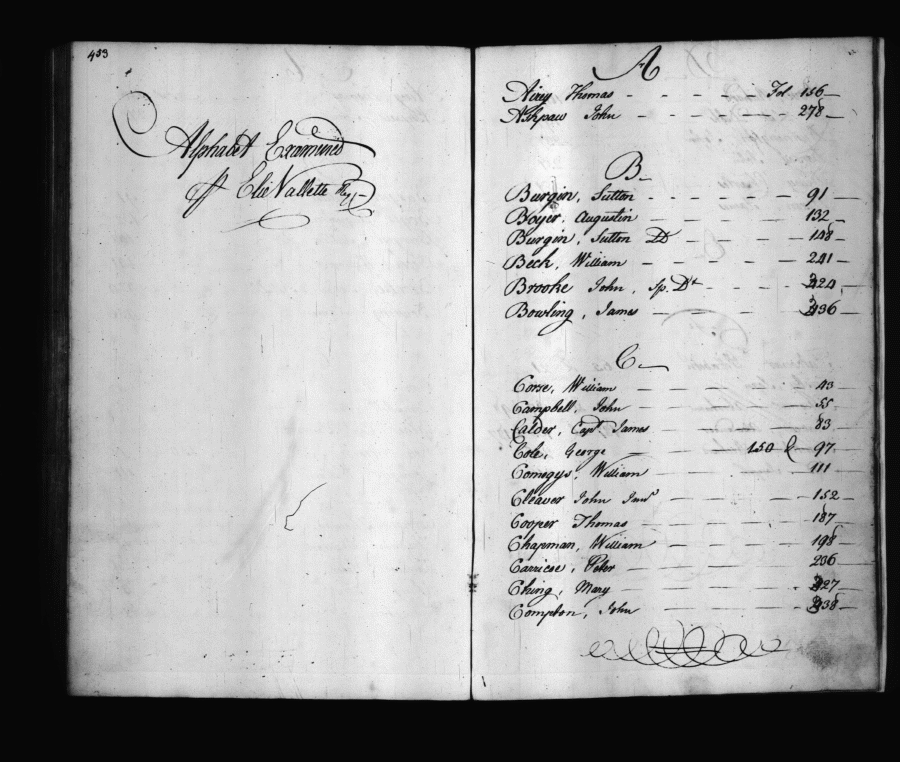 453
Alphabet Examined
Elie Vallette Regr
A
Airey Thomas - - - - - Fol 156
Ashpaw John - - - - - 278
B
Burgin, Sutton - - - - - 91
Boyer, Augustin - - - - - 132
Burgin, Sutton Dd - - - - 148
Beck, William - - - - - 241
Brooke John, Sp. Dt - - - 324
Bowling, James - - - - - 336
C
Corse, William - - - - - 43
Campbell, John - - - - - 55
Calder, Capt. James - - - - 83
Cole, George - - - 150 & 97
Comegys, William - - - - 111
Cleaver John Junr - - - - 152
Cooper Thomas - - - - - 187
Chapman, William - - - - 198
Carricoe, Peter - - - - - 236
Ching, Mary - - - - - 327
Compton, John - - - - - 338